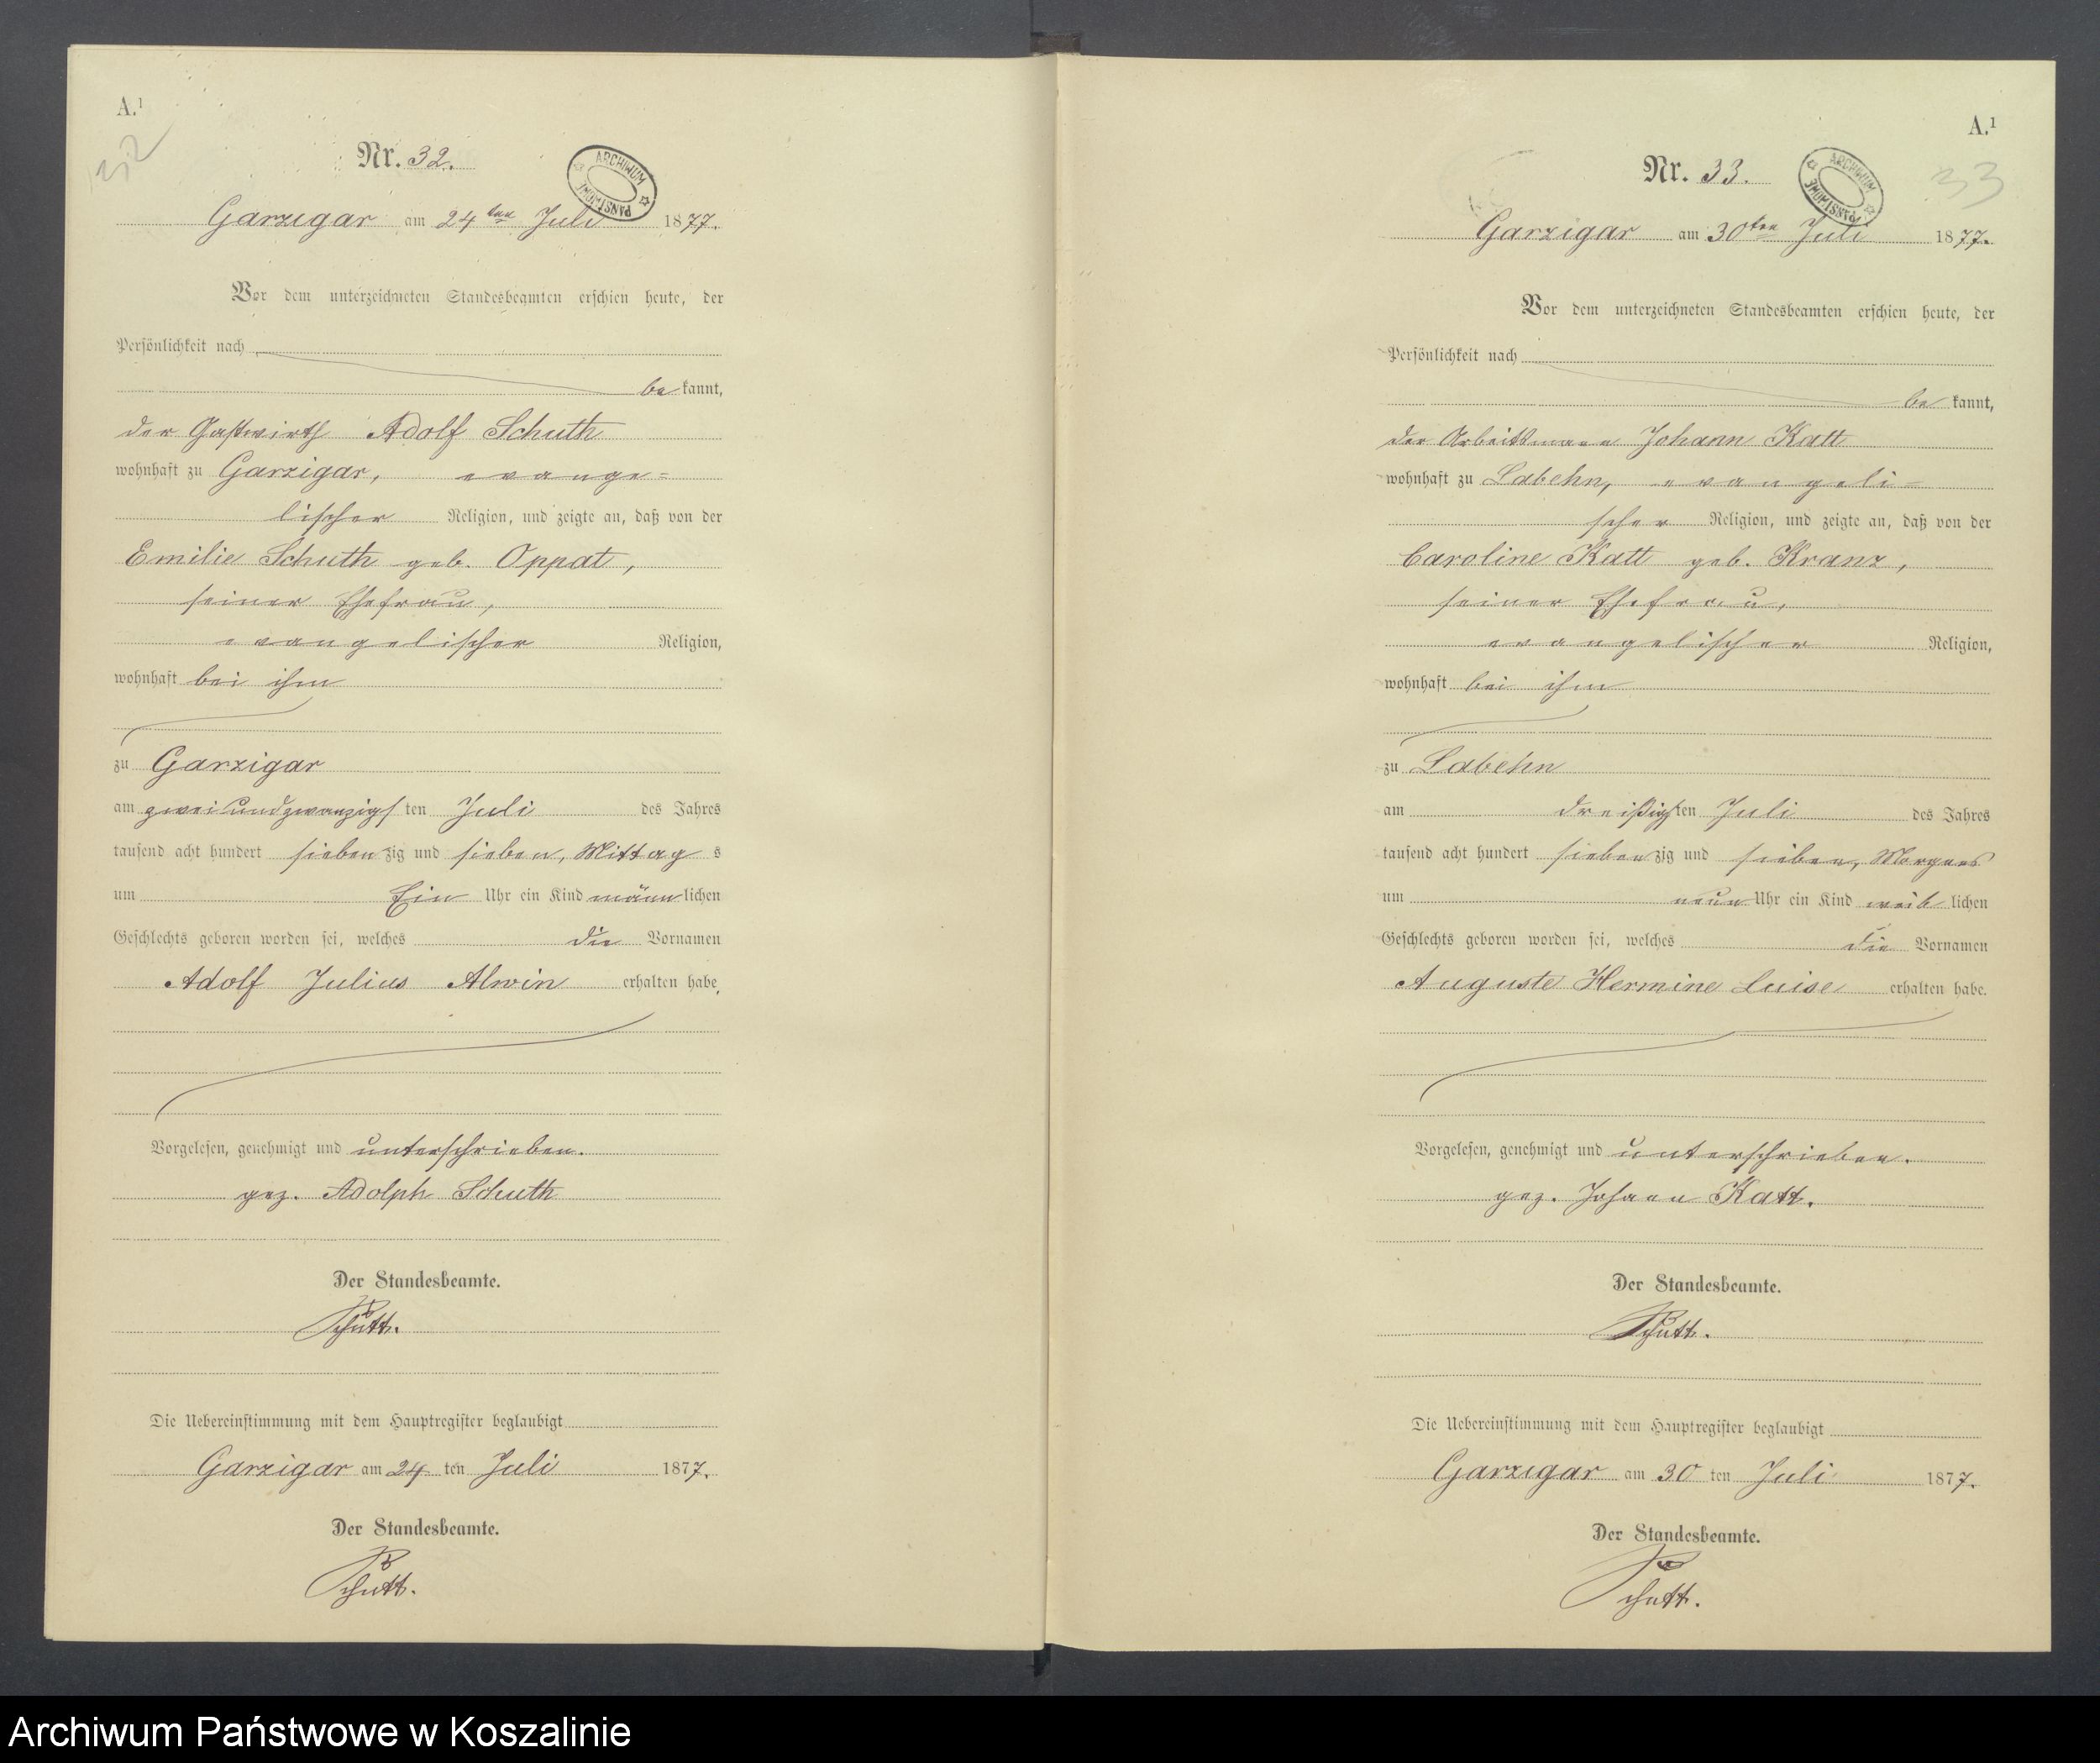 A.¹
32
Nr. 32.
ARCHIWUM PAŃSTWOWE
Garzigar am 24ten Juli 1877.
Vor dem unterzeichneten Standesbeamten erschien heute, der
Persönlichkeit nach
bekannt,
der Gastwirth Adolf Schuth
wohnhaft zu Garzigar, evange=
lischer Religion, und zeigte an, daß von der
Emilie Schuth geb. Oppat,
seiner Ehefrau,
evangelischer Religion,
wohnhaft bei ihm
zu Garzigar
am zweiundzwanzigsten Juli des Jahres
tausend acht hundert siebenzig und sieben, Mittags
um Ein Uhr ein Kind männlichen
Geschlechts geboren worden sei, welches die Vornamen
Adolf Julius Alwin erhalten habe.
Vorgelesen, genehmigt und unterschrieben.
gez. Adolph Schuth
Der Standesbeamte.
Schütt.
Die Uebereinstimmung mit dem Hauptregister beglaubigt
Garzigar am 24ten Juli 1877.
Der Standesbeamte.
Schütt.
A.¹
33
Nr. 33.
ARCHIWUM PAŃSTWOWE
Garzigar am 30ten Juli 1877.
Vor dem unterzeichneten Standesbeamten erschien heute, der
Persönlichkeit nach
bekannt,
der Arbeitsmann Johann Katt
wohnhaft zu Labehn, evangeli=
scher Religion, und zeigte an, daß von der
Caroline Katt geb. Kranz,
seiner Ehefrau,
evangelischer Religion,
wohnhaft bei ihm
zu Labehn
am dreißigsten Juli des Jahres
tausend acht hundert siebenzig und sieben, Morgens
um neun Uhr ein Kind weiblichen
Geschlechts geboren worden sei, welches die Vornamen
Auguste Hermine Luise erhalten habe.
Vorgelesen, genehmigt und unterschrieben.
gez. Johann Katt.
Der Standesbeamte.
Schütt.
Die Uebereinstimmung mit dem Hauptregister beglaubigt
Garzigar am 30ten Juli 1877.
Der Standesbeamte.
Schütt.
Archiwum Państwowe w Koszalinie